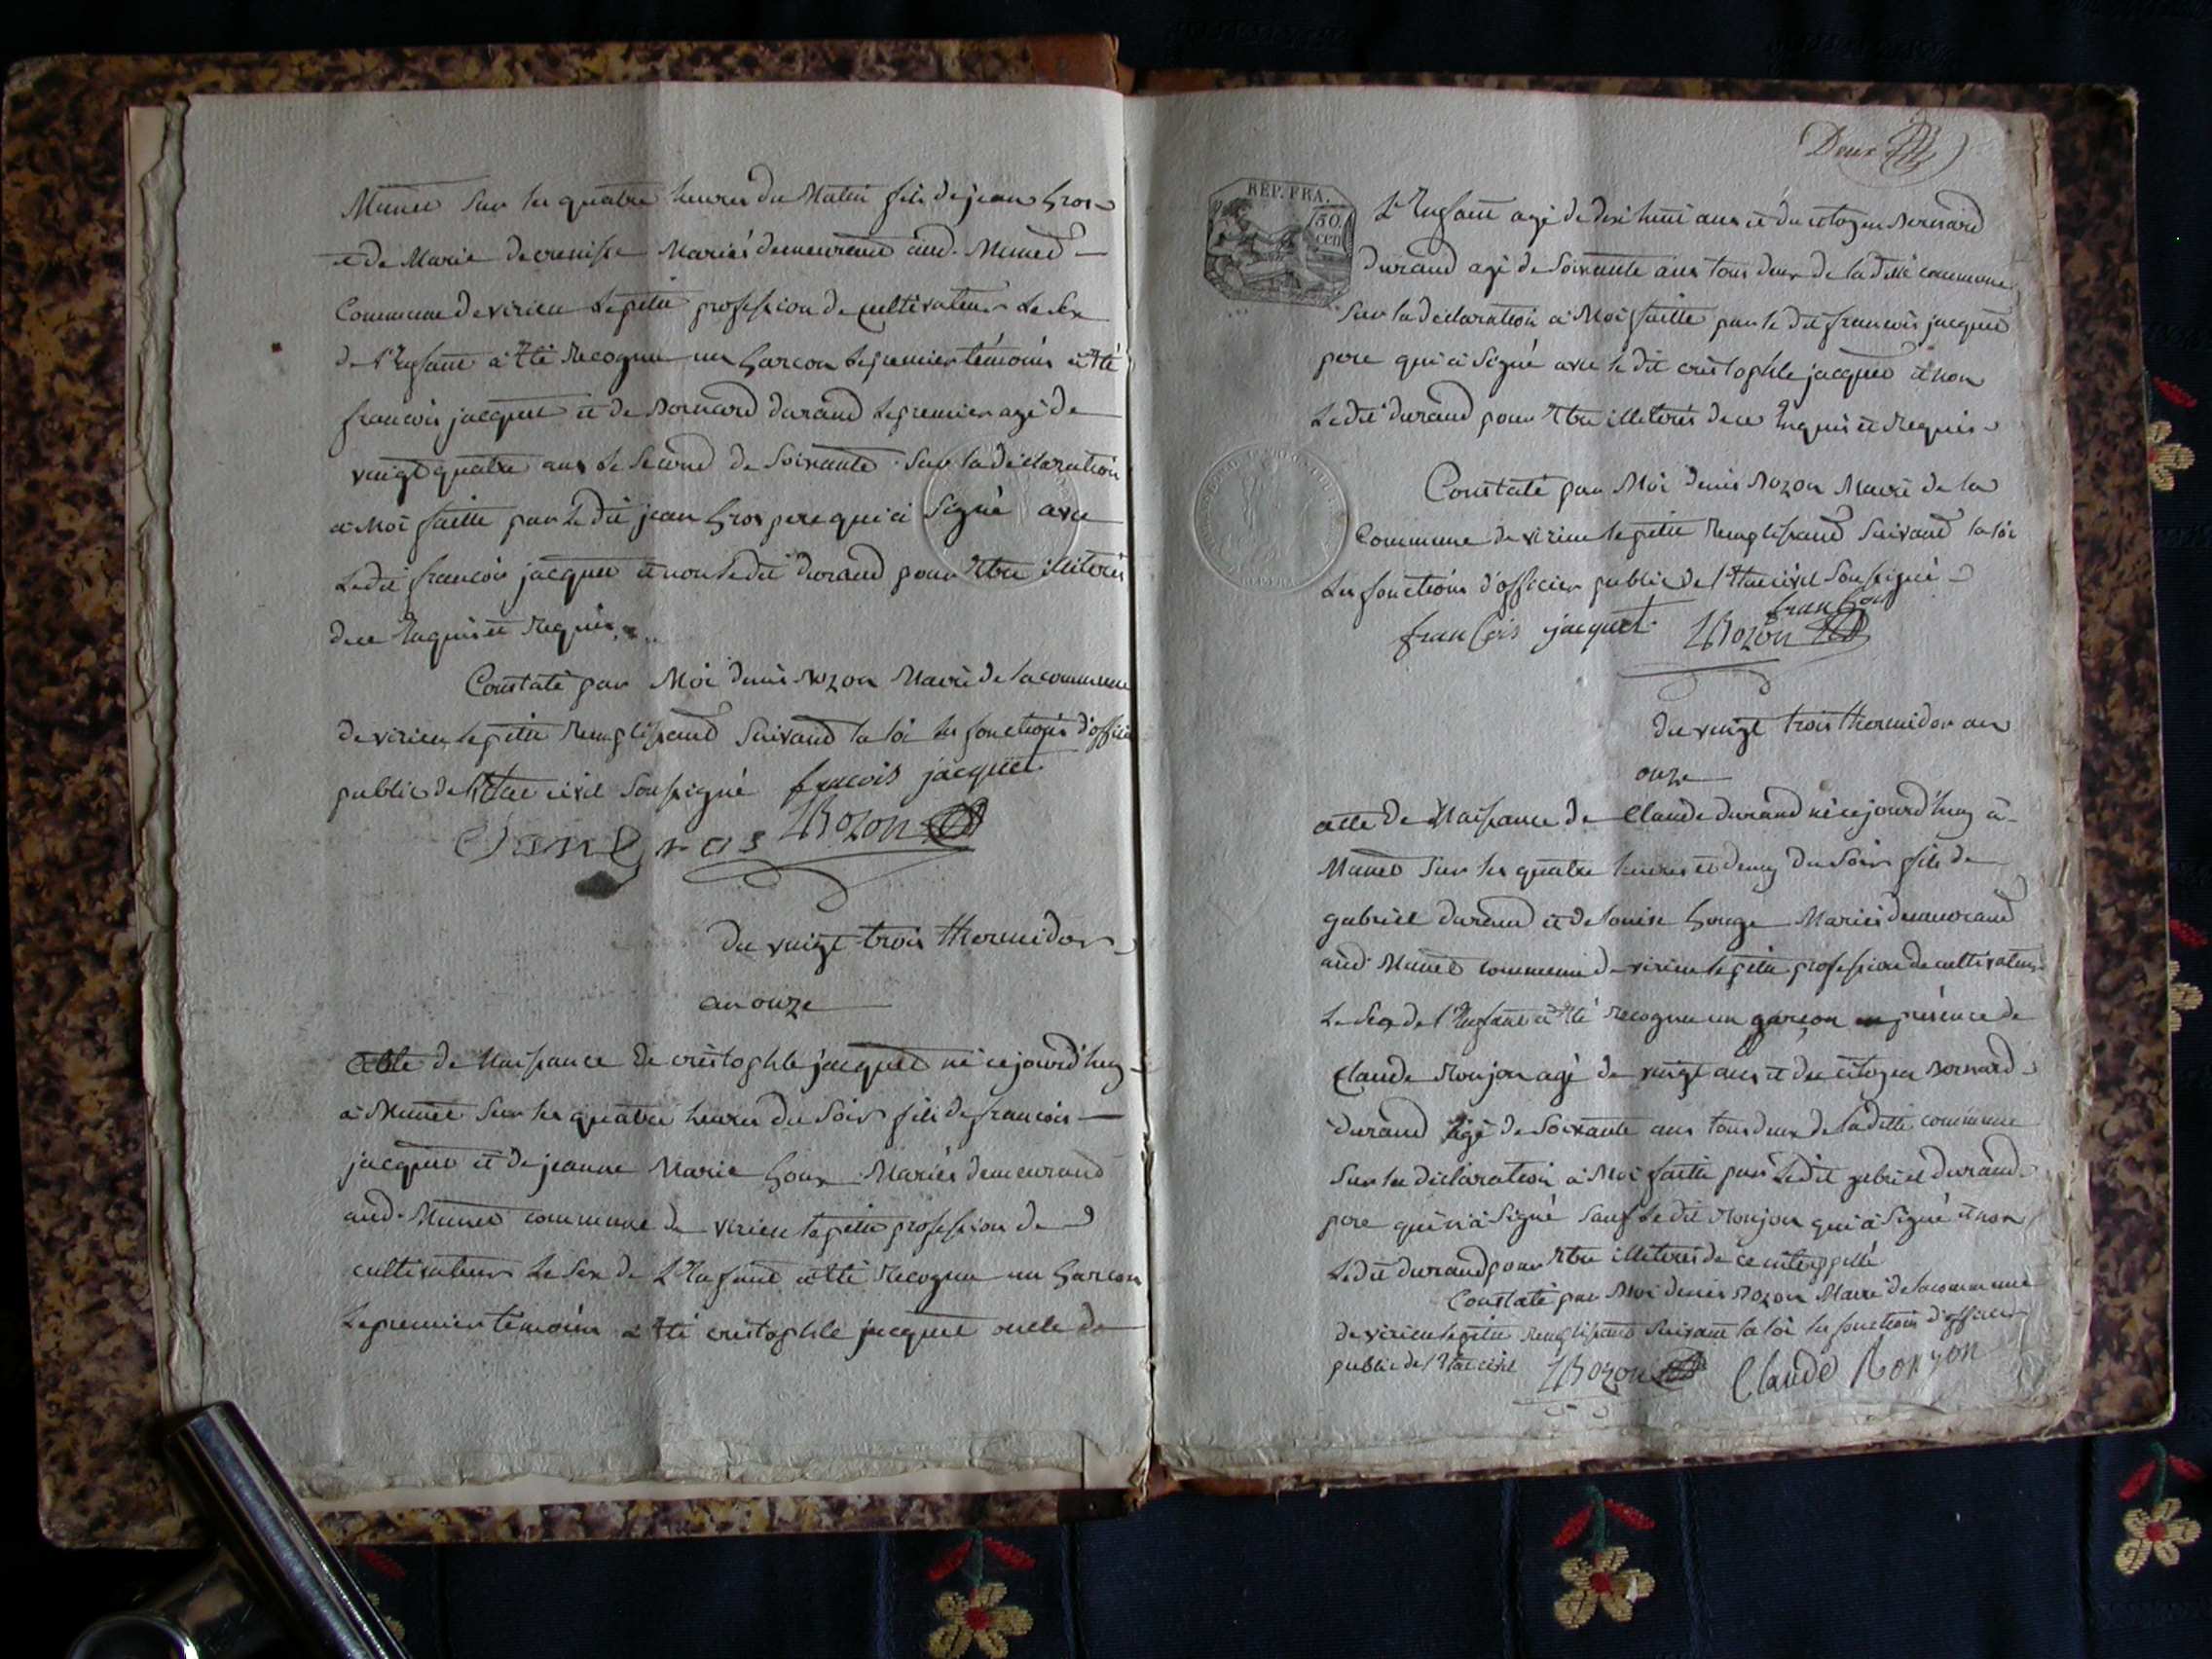 Munet Sur les quatre heures du Matin fils de jean Gros
et de Marie decrenisse Mariés demeurand aud. Munet
Commune de virieu le petit profession de cultivateur Le Sex
de l'Enfant à Eté Recognu un Garcon le premier témoins à Eté
francois jacquet et de Bernard durand le premier agé de
vingt quatre ans le Second de Soixante Sur la déclaration
à Moi faitte par le dit jean Gros pere qui à Signé avec
Ledit francois jacquet et non le dit durand pour Etre illiterés
de ce Enquis et Requis
Constaté par Moi denis Bozon Maire de la commune
de virieu le petit Remplissand Suivand la loi les fonctions d'offici
public de l'Etat civil Soussigné fracois jacquet
Jean Gros DBozon
du vingt trois thermidor
an onze
acte de Naissance de cristophle jacquet né cejourd'huy
à Munet Sur les quatre heures du Soir fils de francois
jacquet et de jeanne Marie Goux Mariés demeurand
aud. Munet commune de virieu le petit profession de
cultivateur Le Sex de L'Enfant à Eté Recognu un Garcon
Le premier temoins à Eté cristophle jacquet oncle de
Deux
REP. FRA.
50
cen
L'Enfant agé de dix huit ans et du citoyen Bernard
durand agé de Soixante ans tous deux de la ditte commune
Sur la déclaration à Moi faitte par le dit francois jacquet
pere qui à Signé avec le dit cristophle jacquet et non
Ledit durand pour Etre illiterés de ce Enquis et Requis
Constaté par Moi denis Bozon Maire de la
Commune de virieu le petit Remplissand Suivand la loi
Les fonctions d'officier public de l'Etat civil Soussigné
francois jacquet DBozon
du vingt trois thermidor an
onze
acte de Naissance de Claude durand né cejourd'huy à
Munet Sur les quatre heures et demy du Soir fils de
gabriel durand et de louise Gouge Mariés demeurand
aud. Munet commune de virieu le petit profession de cultivateur
Le Sex de l'Enfant à Eté Recognu un garcon en présence de
Claude Ronjon agé de vingt ans et du citoyen Bernard
durand agé de Soixante ans tous deux de la ditte commune
Sur la déclaration à Moi faitte par Ledit gabriel durand
pere qui n'à Signé Sauf Le dit Ronjon qui à Signé et non
Ledit durand pour Etre illiterés de ce interppellé
Constaté par Moi denis Bozon Maire de la commune
de virieu le petit Remplissand Suivant la loi les fonctions d'officier
public de l'Etat civil DBozon Claude Ronjon